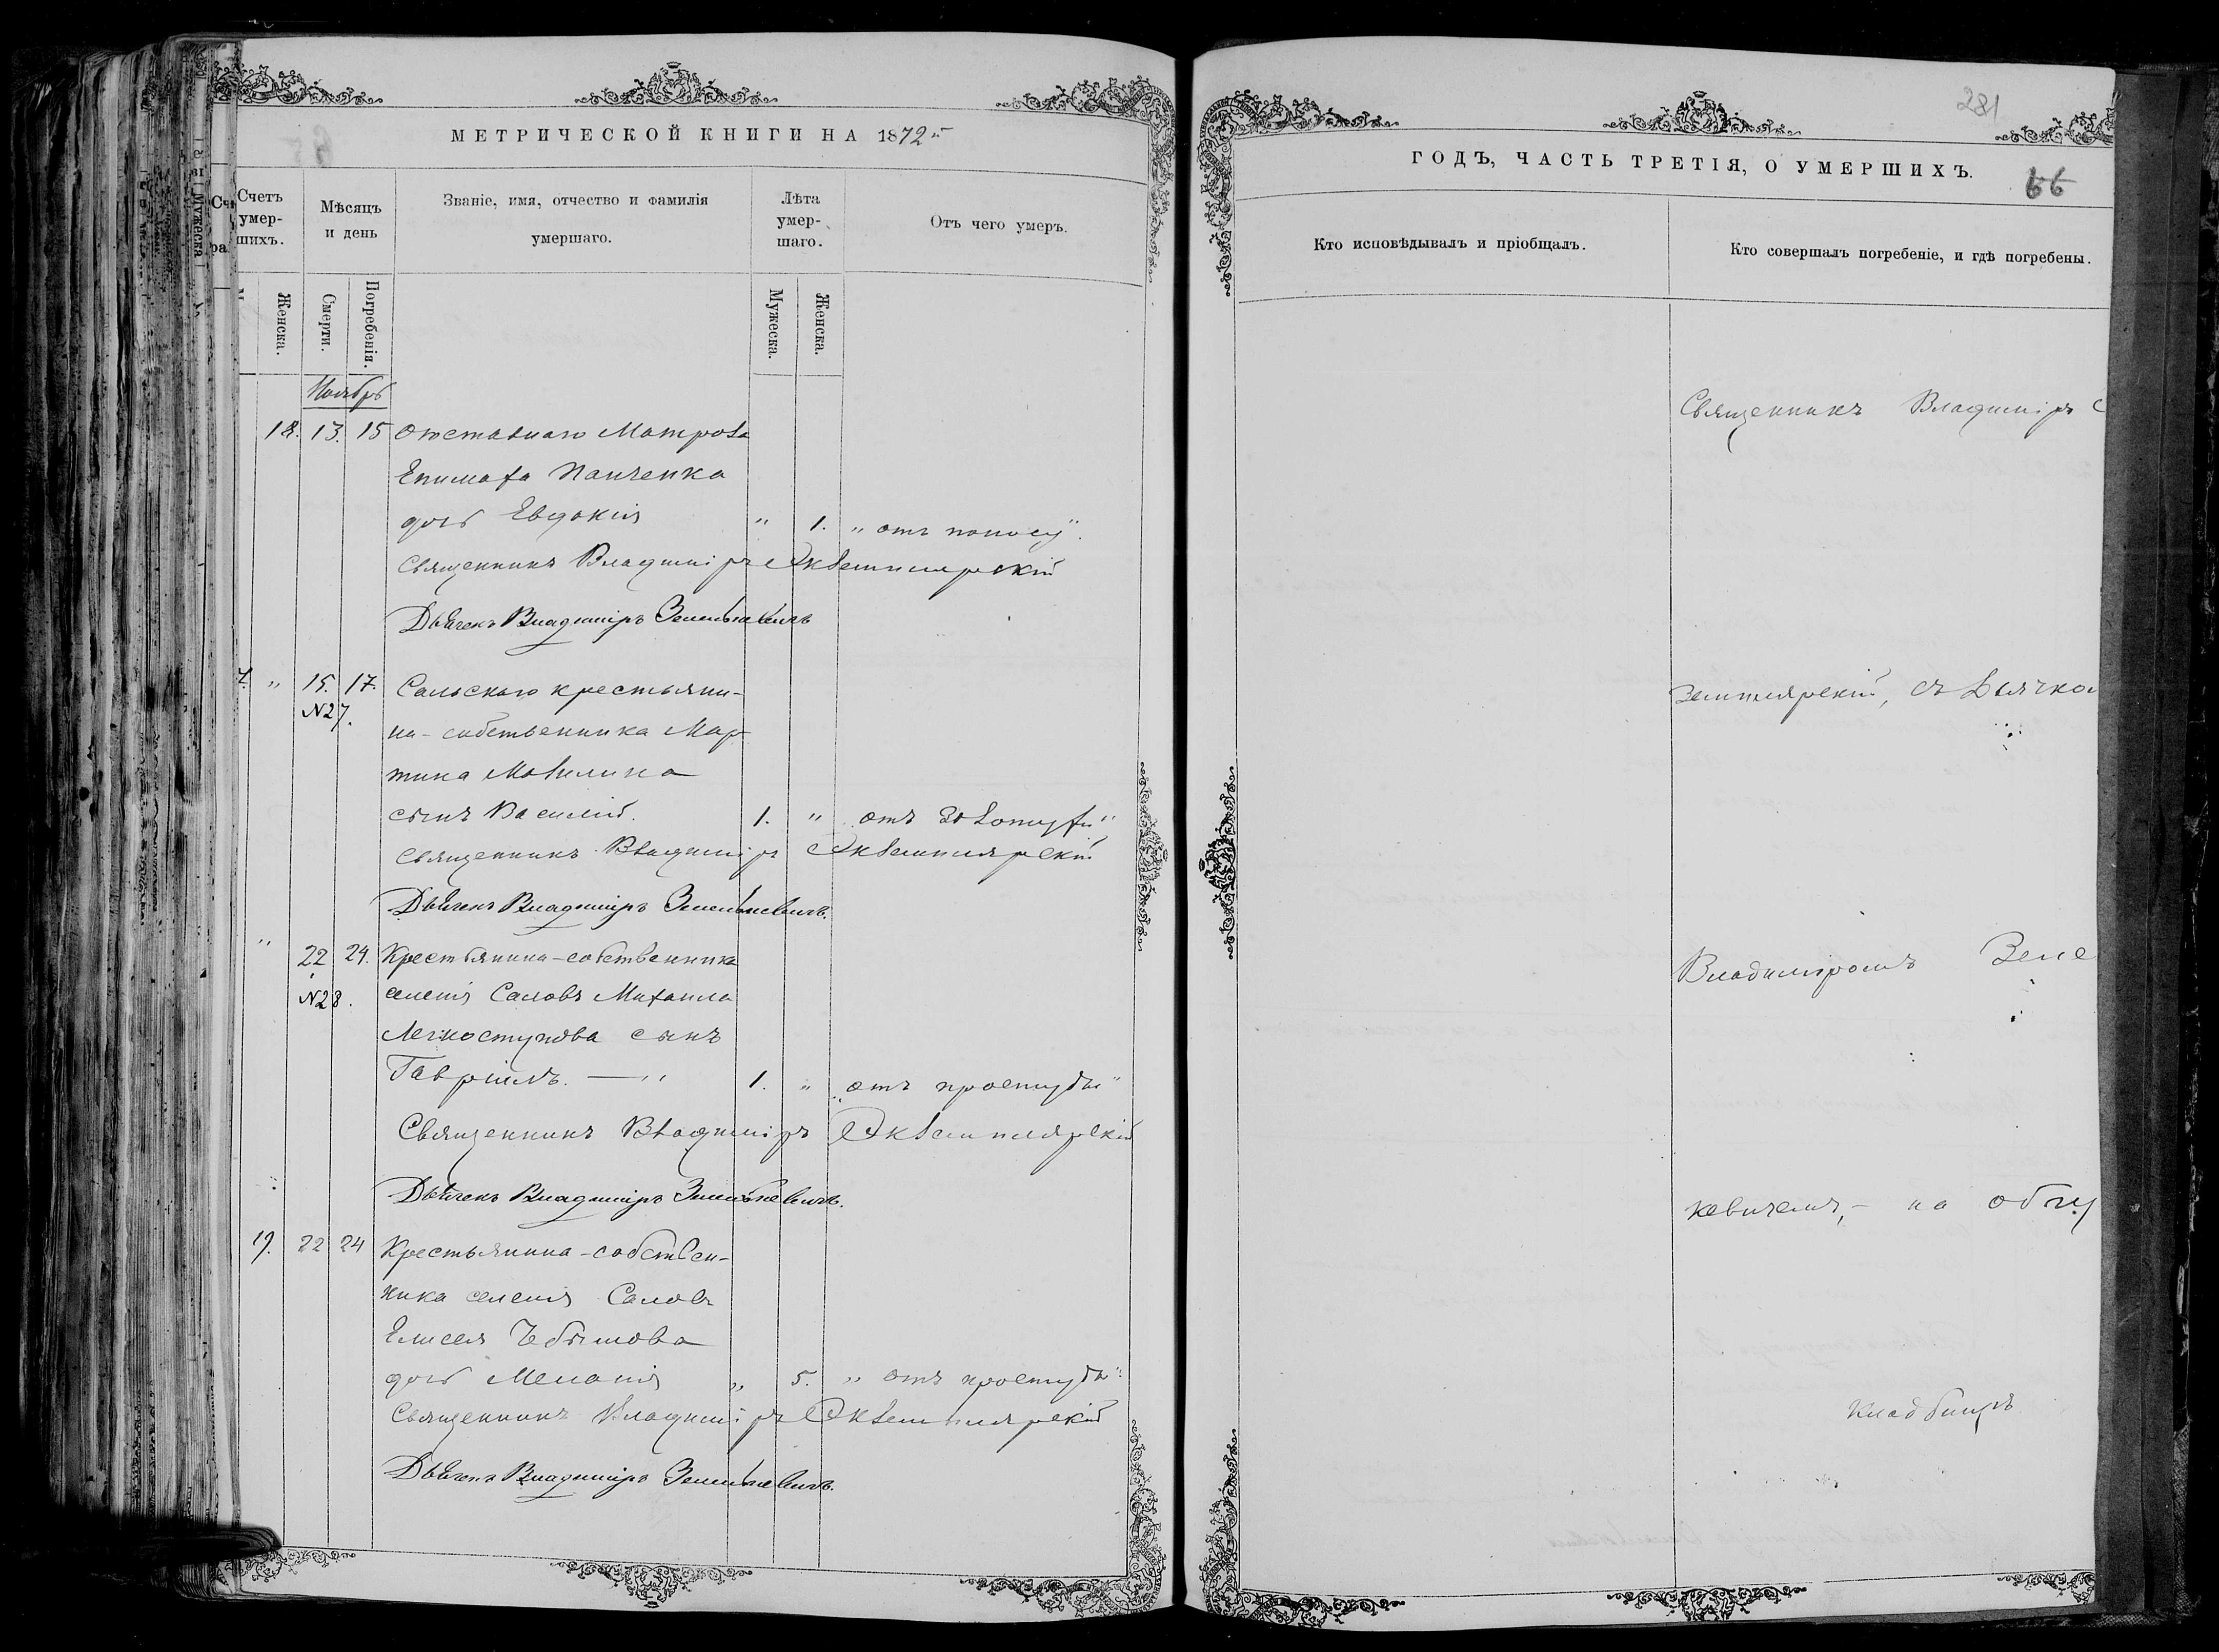 МЕТРИЧЕСКОЙ КНИГИ НА 1872й
Счетъ умершихъ.
Мѣсяцъ и день
Званіе, имя, отчество и фамилія умершаго.
Лѣта умершаго.
Отъ чего умеръ.
Женска.
Смерти.
Погребенія.
Мужеска.
Женска.
Ноябрь
18. 13. 15 Отставнаго Матроза
Епимаха Панченка
дочь Евдокія " 1. "отъ поносу".
Священникъ Владиміръ Экземплярскій
Дьячекъ Владиміръ Зеленкевичъ
" 15. 17. Сальскаго крестьяни-
№27.
на-собственника Мар-
тина
сынъ Василій. 1. " отъ золотухи"
Священникъ Владиміръ Экземплярскій
Дьячекъ Владиміръ Зеленкевичъ.
" 22 24. Крестьянина-собственника
№28. селенія Саловъ Михаила
Легкоступова сынъ
Гавріилъ. — " 1. " "отъ простуды"
Священникъ Владиміръ Экземплярскій
Дьячекъ Владиміръ Зеленкевичъ.
19. 22 24 Крестьянина-собствен-
ника селенія Саловъ
Елисея
дочь Меланія " 5. " отъ простуды"
Священникъ Владиміръ Экземплярскій
Дьячекъ Владиміръ Зеленкевичъ.
281
ГОДЪ, ЧАСТЬ ТРЕТІЯ, О УМЕРШИХЪ.
66
Кто исповѣдывалъ и пріобщалъ.
Кто совершалъ погребеніе, и гдѣ погребены.
Священникъ Владиміръ
земплярскій, съ Дьячко
Владиміромъ Зеле
кевичемъ, - на общ
кладбищѣ